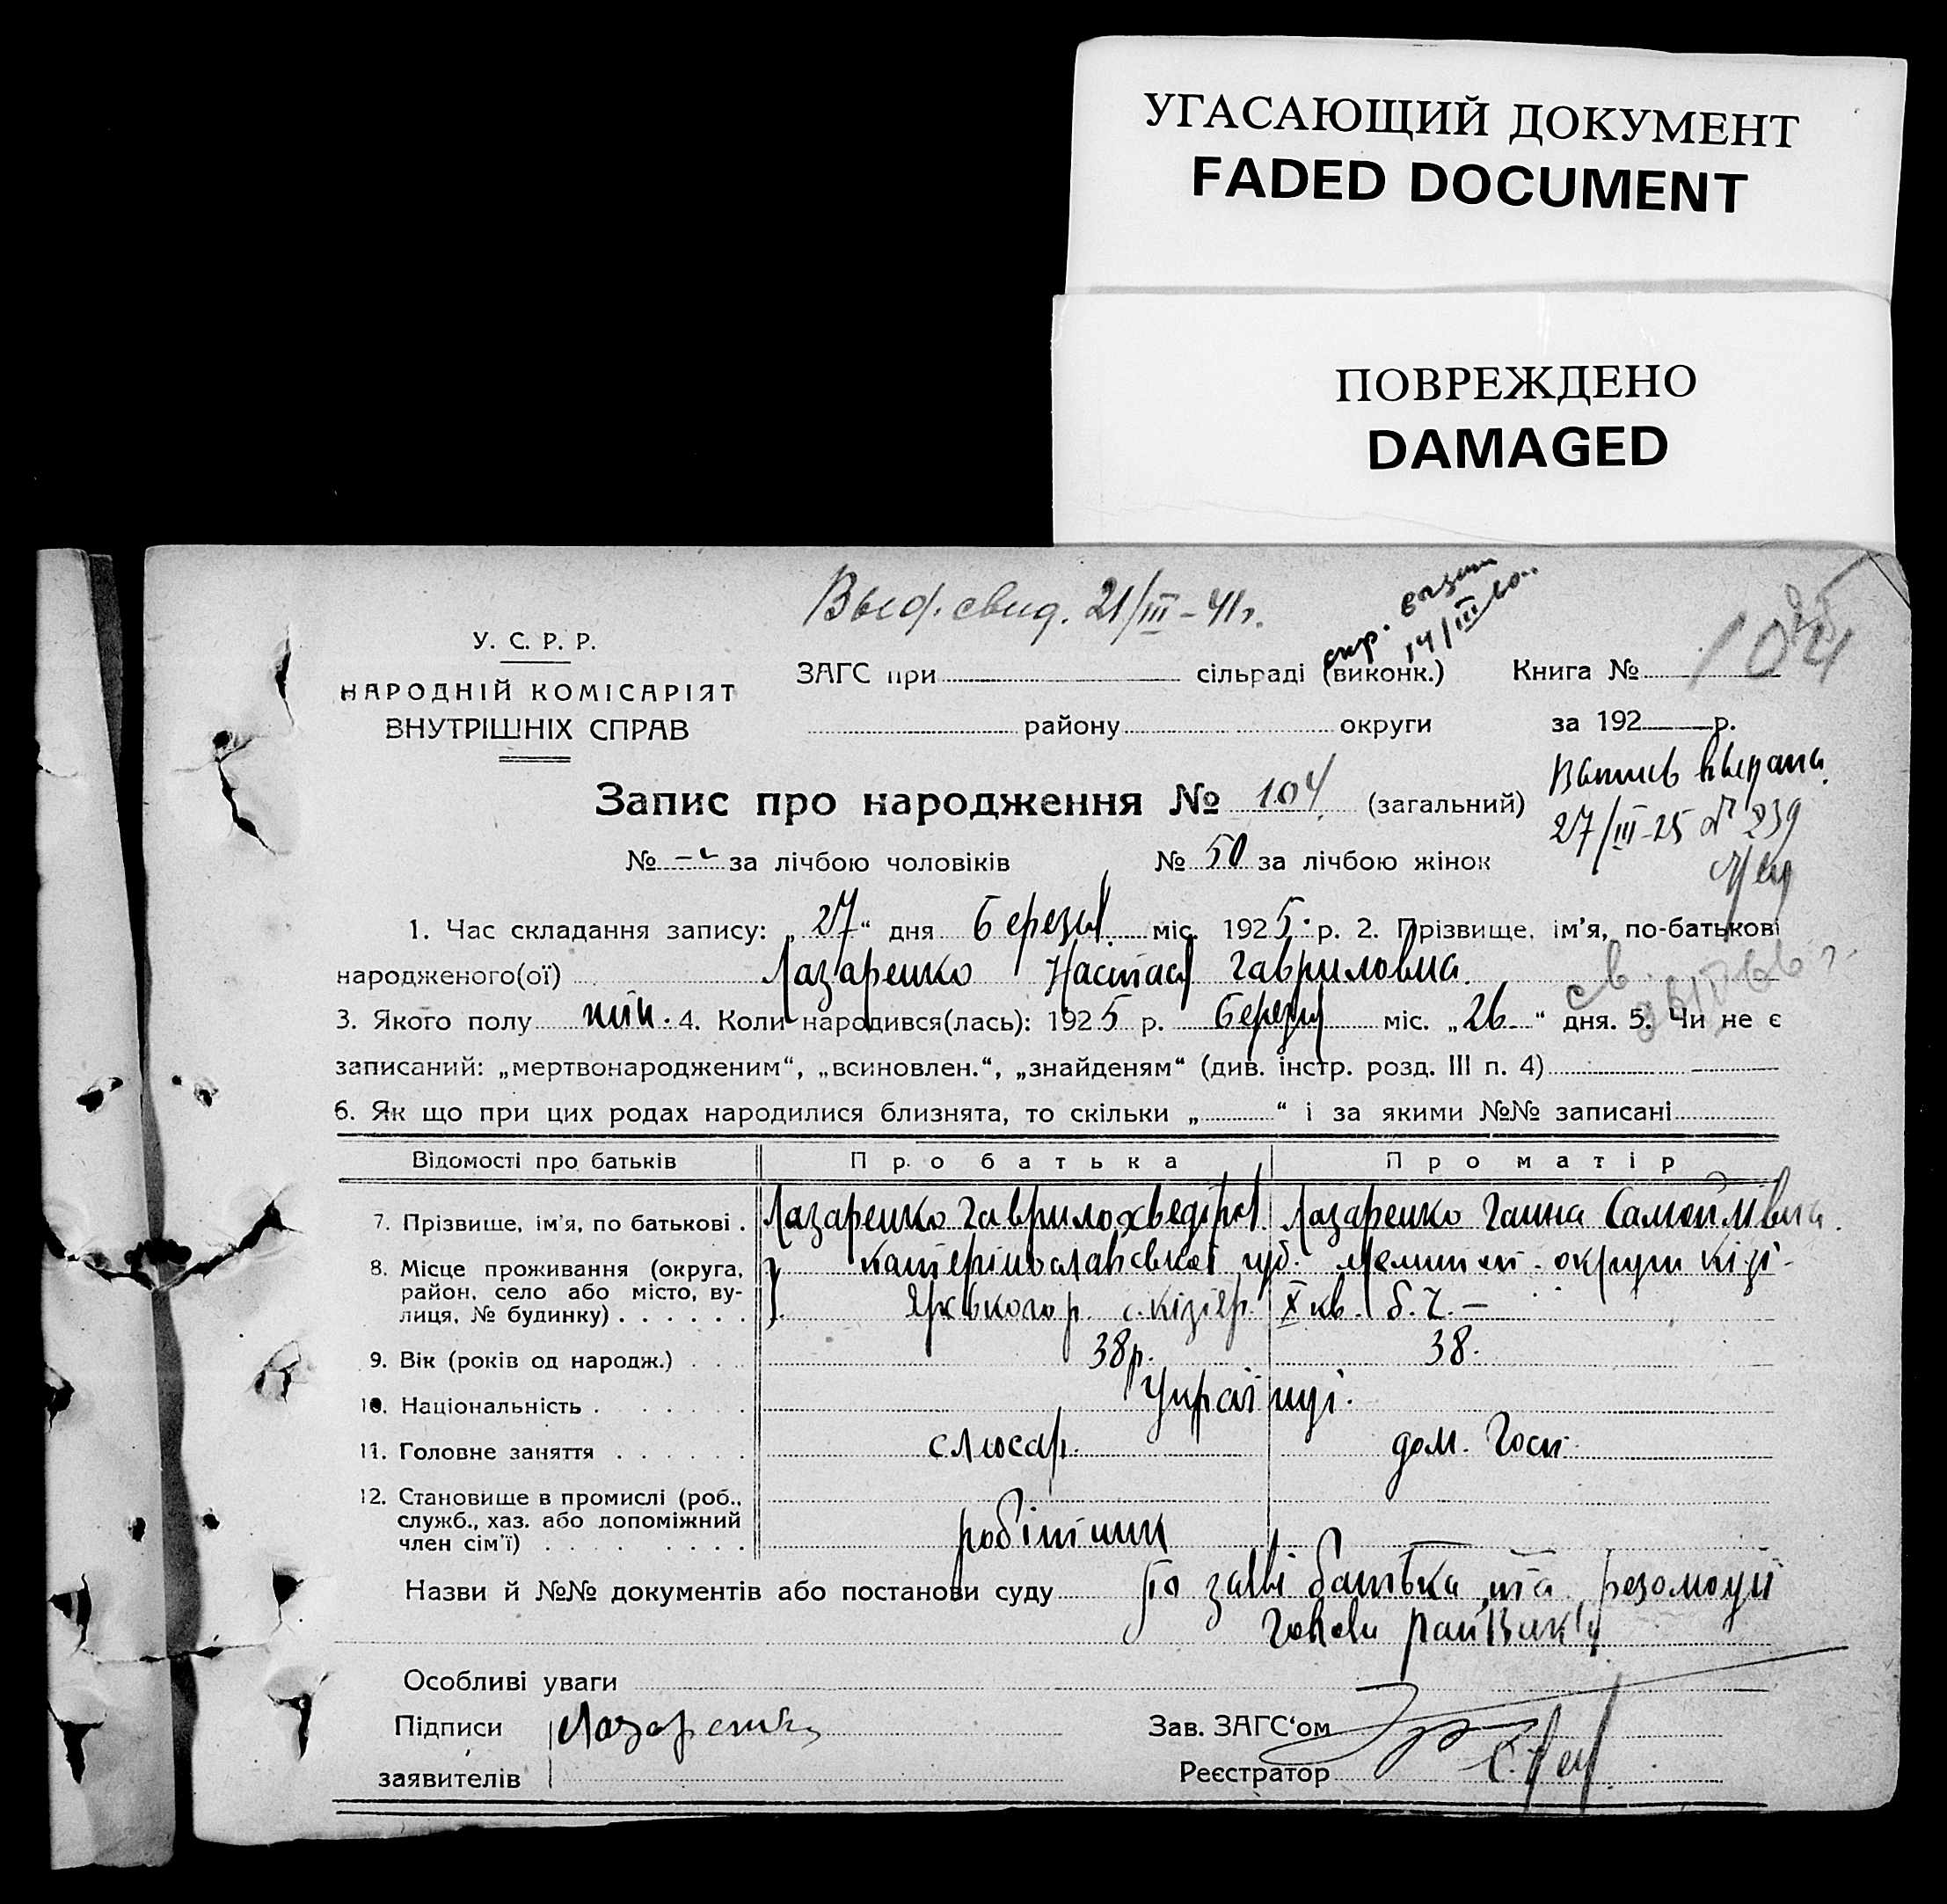 УГАСАЮЩИЙ ДОКУМЕНТ
FADED DOCUMENT
ПОВРЕЖДЕНО
DAMAGED
Выд. свид. 21/III-41г.
14/III 60
104
У. С. Р. Р.
НАРОДНІЙ КОМІСАРІЯТ
ВНУТРІШНІХ СПРАВ
ЗАГС при сільраді (виконк.) Книга №
району округи за 192 р.
Выпись выдана
27/III-25 № 239
Запис про народження № 104 (загальний)
№ — за лічбою чоловіків № 50 за лічбою жінок
1. Час складання запису: „27“ дня березня міс. 1925 р. 2. Прізвище, ім'я, по-батькові
народженого(ої) Лазаренко Настася Гавриловна.
3. Якого полу жін. 4. Коли народився(лась): 1925 р. березня міс. „26“ дня. 5. Чи не є
записаний: „мертвонародженим“, „всиновлен.“, „знайденям“ (див. інстр. розд. III п. 4)
6. Як що при цих родах народилися близнята, то скільки „ “ і за якими №№ записані
Відомості про батьків Про батька Про матір
7. Прізвище, ім'я, по батькові . Лазаренко Гаврило Хведіров Лазаренко Ганна Самойлівна.
8. Місце проживання (округа, Катеринославської губ. Мелитоп. округи Кізі-
район, село або місто, ву- ярського р. с. Кізіяр. X кв. б. Ч. —
лиця, № будинку)
9. Вік (років од народж.) 38р. 38.
10. Національність Українці.
11. Головне заняття слюсар. дом. Госп.
12. Становище в промислі (роб.,
служб., хаз. або допоміжний
член сім'ї) робітник
Назви й №№ документів або постанови суду По заяві батька та резолюції
Голови РайВик'у
Особливі уваги
Підписи Лазаренко Зав. ЗАГС‘ом
заявителів Реєстратор